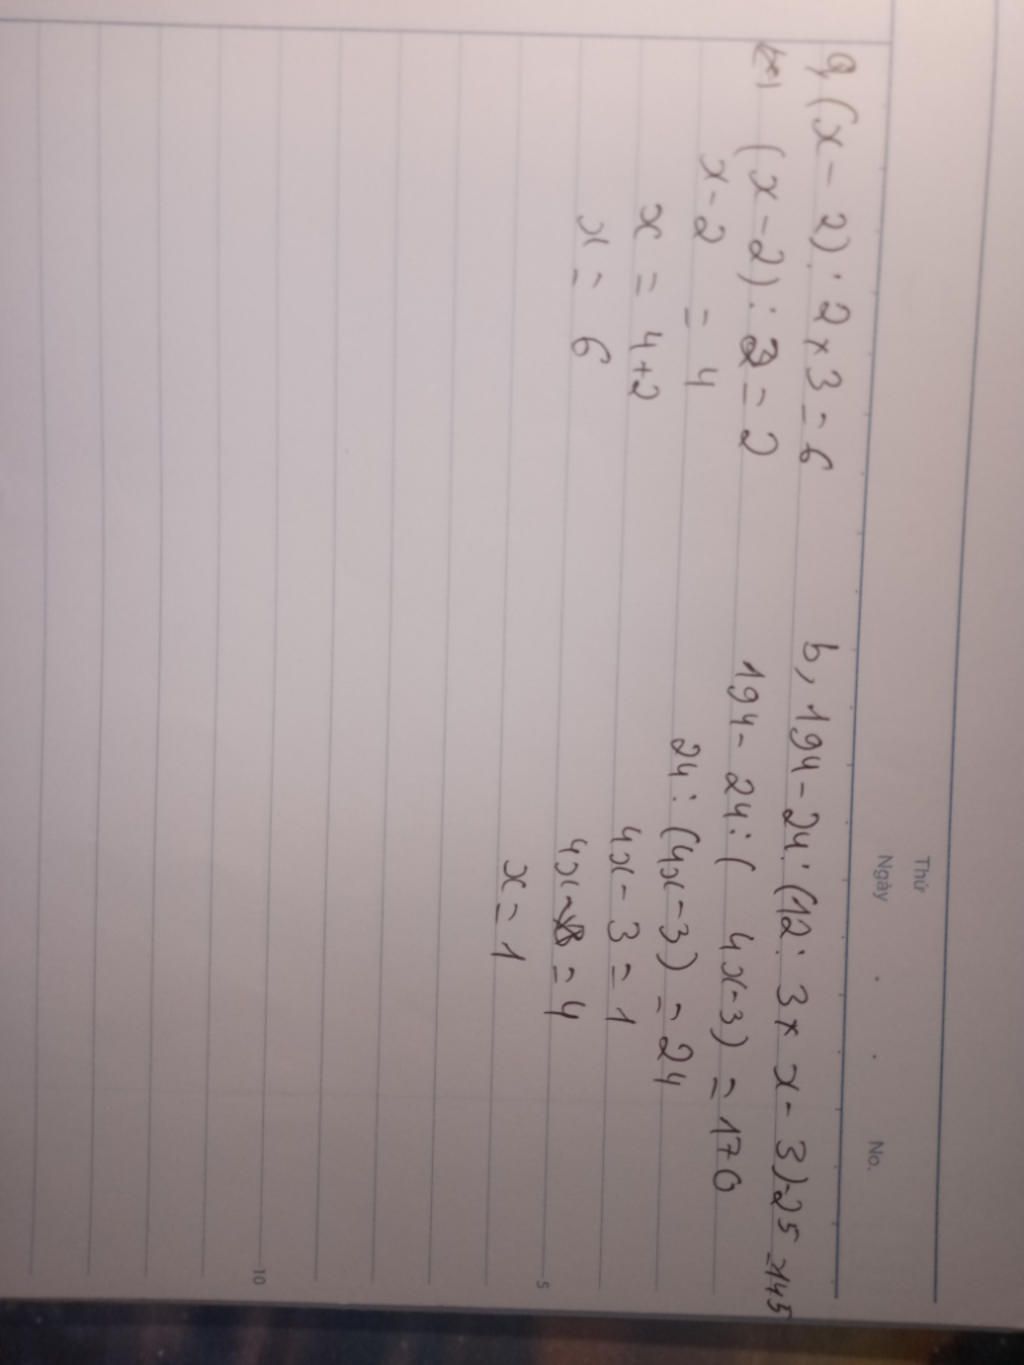 Thứ
Ngày . . No.
a, (x - 2) : 2 x 3 = 6
(x - 2) : 2 = 2
x - 2 = 4
x = 4 + 2
x = 6
b, 194 - 24 : (12 : 3 x x - 3) - 25 = 145
194 - 24 : ( 4x - 3) = 170
24 : (4x - 3) = 24
4x - 3 = 1
4x = 4
x = 1
5
10